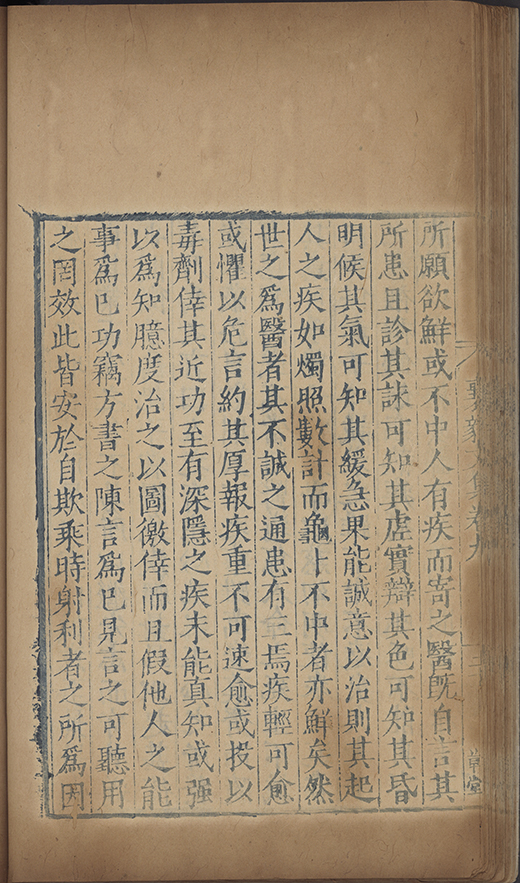 所願欲鮮或不中人有疾而寄之醫旣自言其
所患且診其脉可知其虛實辯其色可知其昏
明候其氣可知其緩急果能誠意以治則其起
人之疾如燭照數計而龜卜不中者亦鮮矣然
世之爲醫者其不誠之通患有三焉疾輕可愈
或懼以危言約其厚報疾重不可速愈或投以
毒劑倖其近功至有深隱之疾未能真知或强
以爲知臆度治之以圖徼倖而且假他人之能
事爲已功竊方書之陳言爲已見言之可聽用
之罔效此皆安於自欺乘時射利者之所爲因